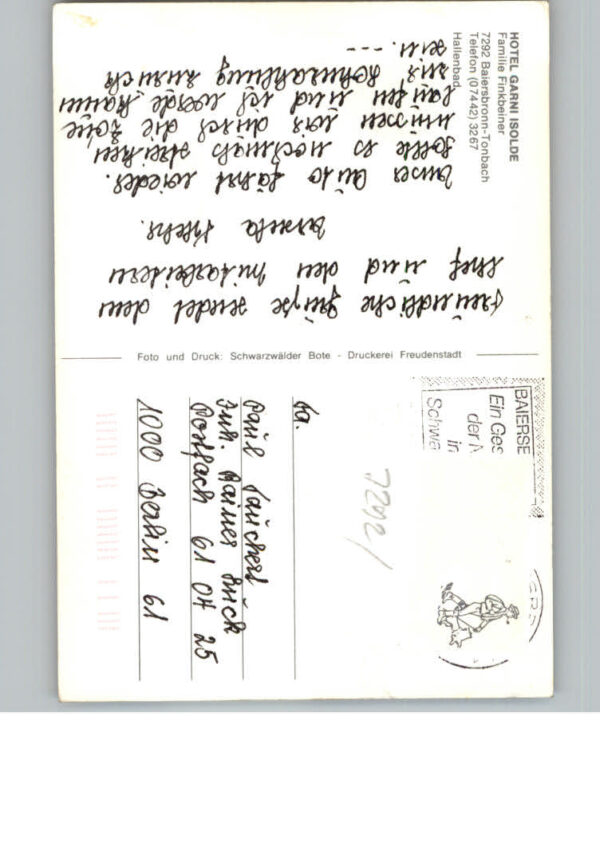 HOTEL GARNI ISOLDE
Familie Finkbeiner
7292 Baiersbronn-Tonbach
Telefon (07442) 3267
Hallenbad
Freundliche Grüße sendet dem
Chef und den Mitarbeitern
Unser Auto fährt wieder.
Sollte es nochmals streiken
müssen wir durch die Zone
laufen und ich werde kaum
zur Lohnzahlung zurück
sein. ---
Foto und Druck: Schwarzwälder Bote - Druckerei Freudenstadt
BAIERSB
Ein Ges
der
in
Schwa
7292/
Fa.
Paul
Inh. Rainer
Postfach 61 04 25
1000 Berlin 61